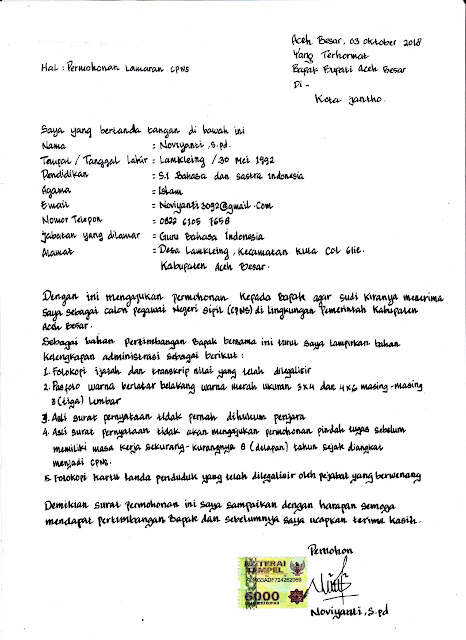 Aceh Besar, 03 Oktober 2018
Yang Terhormat
Hal : Permohonan Lamaran CPNS
Bapak Bupati Aceh Besar
Di -
Kota Jantho.
Saya yang bertanda tangan di bawah ini
Nama : Noviyanti, S.pd.
Tempat / Tanggal Lahir : Lamkleing / 30 Mei 1992
Pendidikan : S.1 Bahasa dan Sastra Indonesia
Agama : Islam
Email : Noviyanti3092@gmail.com
Nomor Telepon : 0822 6105 7658
Jabatan yang dilamar : Guru Bahasa Indonesia
Alamat : Desa Lamkleing, Kecamatan Kuta Cot Glie.
Kabupaten Aceh Besar.
Dengan ini mengajukan permohonan kepada Bapak agar sudi kiranya menerima
Saya sebagai calon pegawai Negeri Sipil (CPNS) di lingkungan Pemerintah Kabupaten
Aceh Besar.
Sebagai bahan pertimbangan Bapak bersama ini turut saya lampirkan bahan
Kelengkapan administrasi sebagai berikut :
1. Fotokopi ijasah dan transkrip nilai yang telah dilegalisir
2. Pasfoto warna berlatar belakang warna merah ukuran 3x4 dan 4x6 masing-masing
3 (tiga) lembar
3. Asli surat pernyataan tidak pernah dihukum penjara
4. Asli surat pernyataan tidak akan mengajukan permohonan pindah tugas sebelum
memiliki masa kerja sekurang-kurangnya 8 (delapan) tahun sejak diangkat
menjadi CPNS.
5. Fotokopi kartu tanda penduduk yang telah dilegalisir oleh pejabat yang berwenang
Demikian surat permohonan ini saya sampaikan dengan harapan semoga
mendapat pertimbangan Bapak dan sebelumnya saya ucapkan terima kasih.
Pemohon
METERAI
TEMPEL
6000
Noviyanti, S.pd